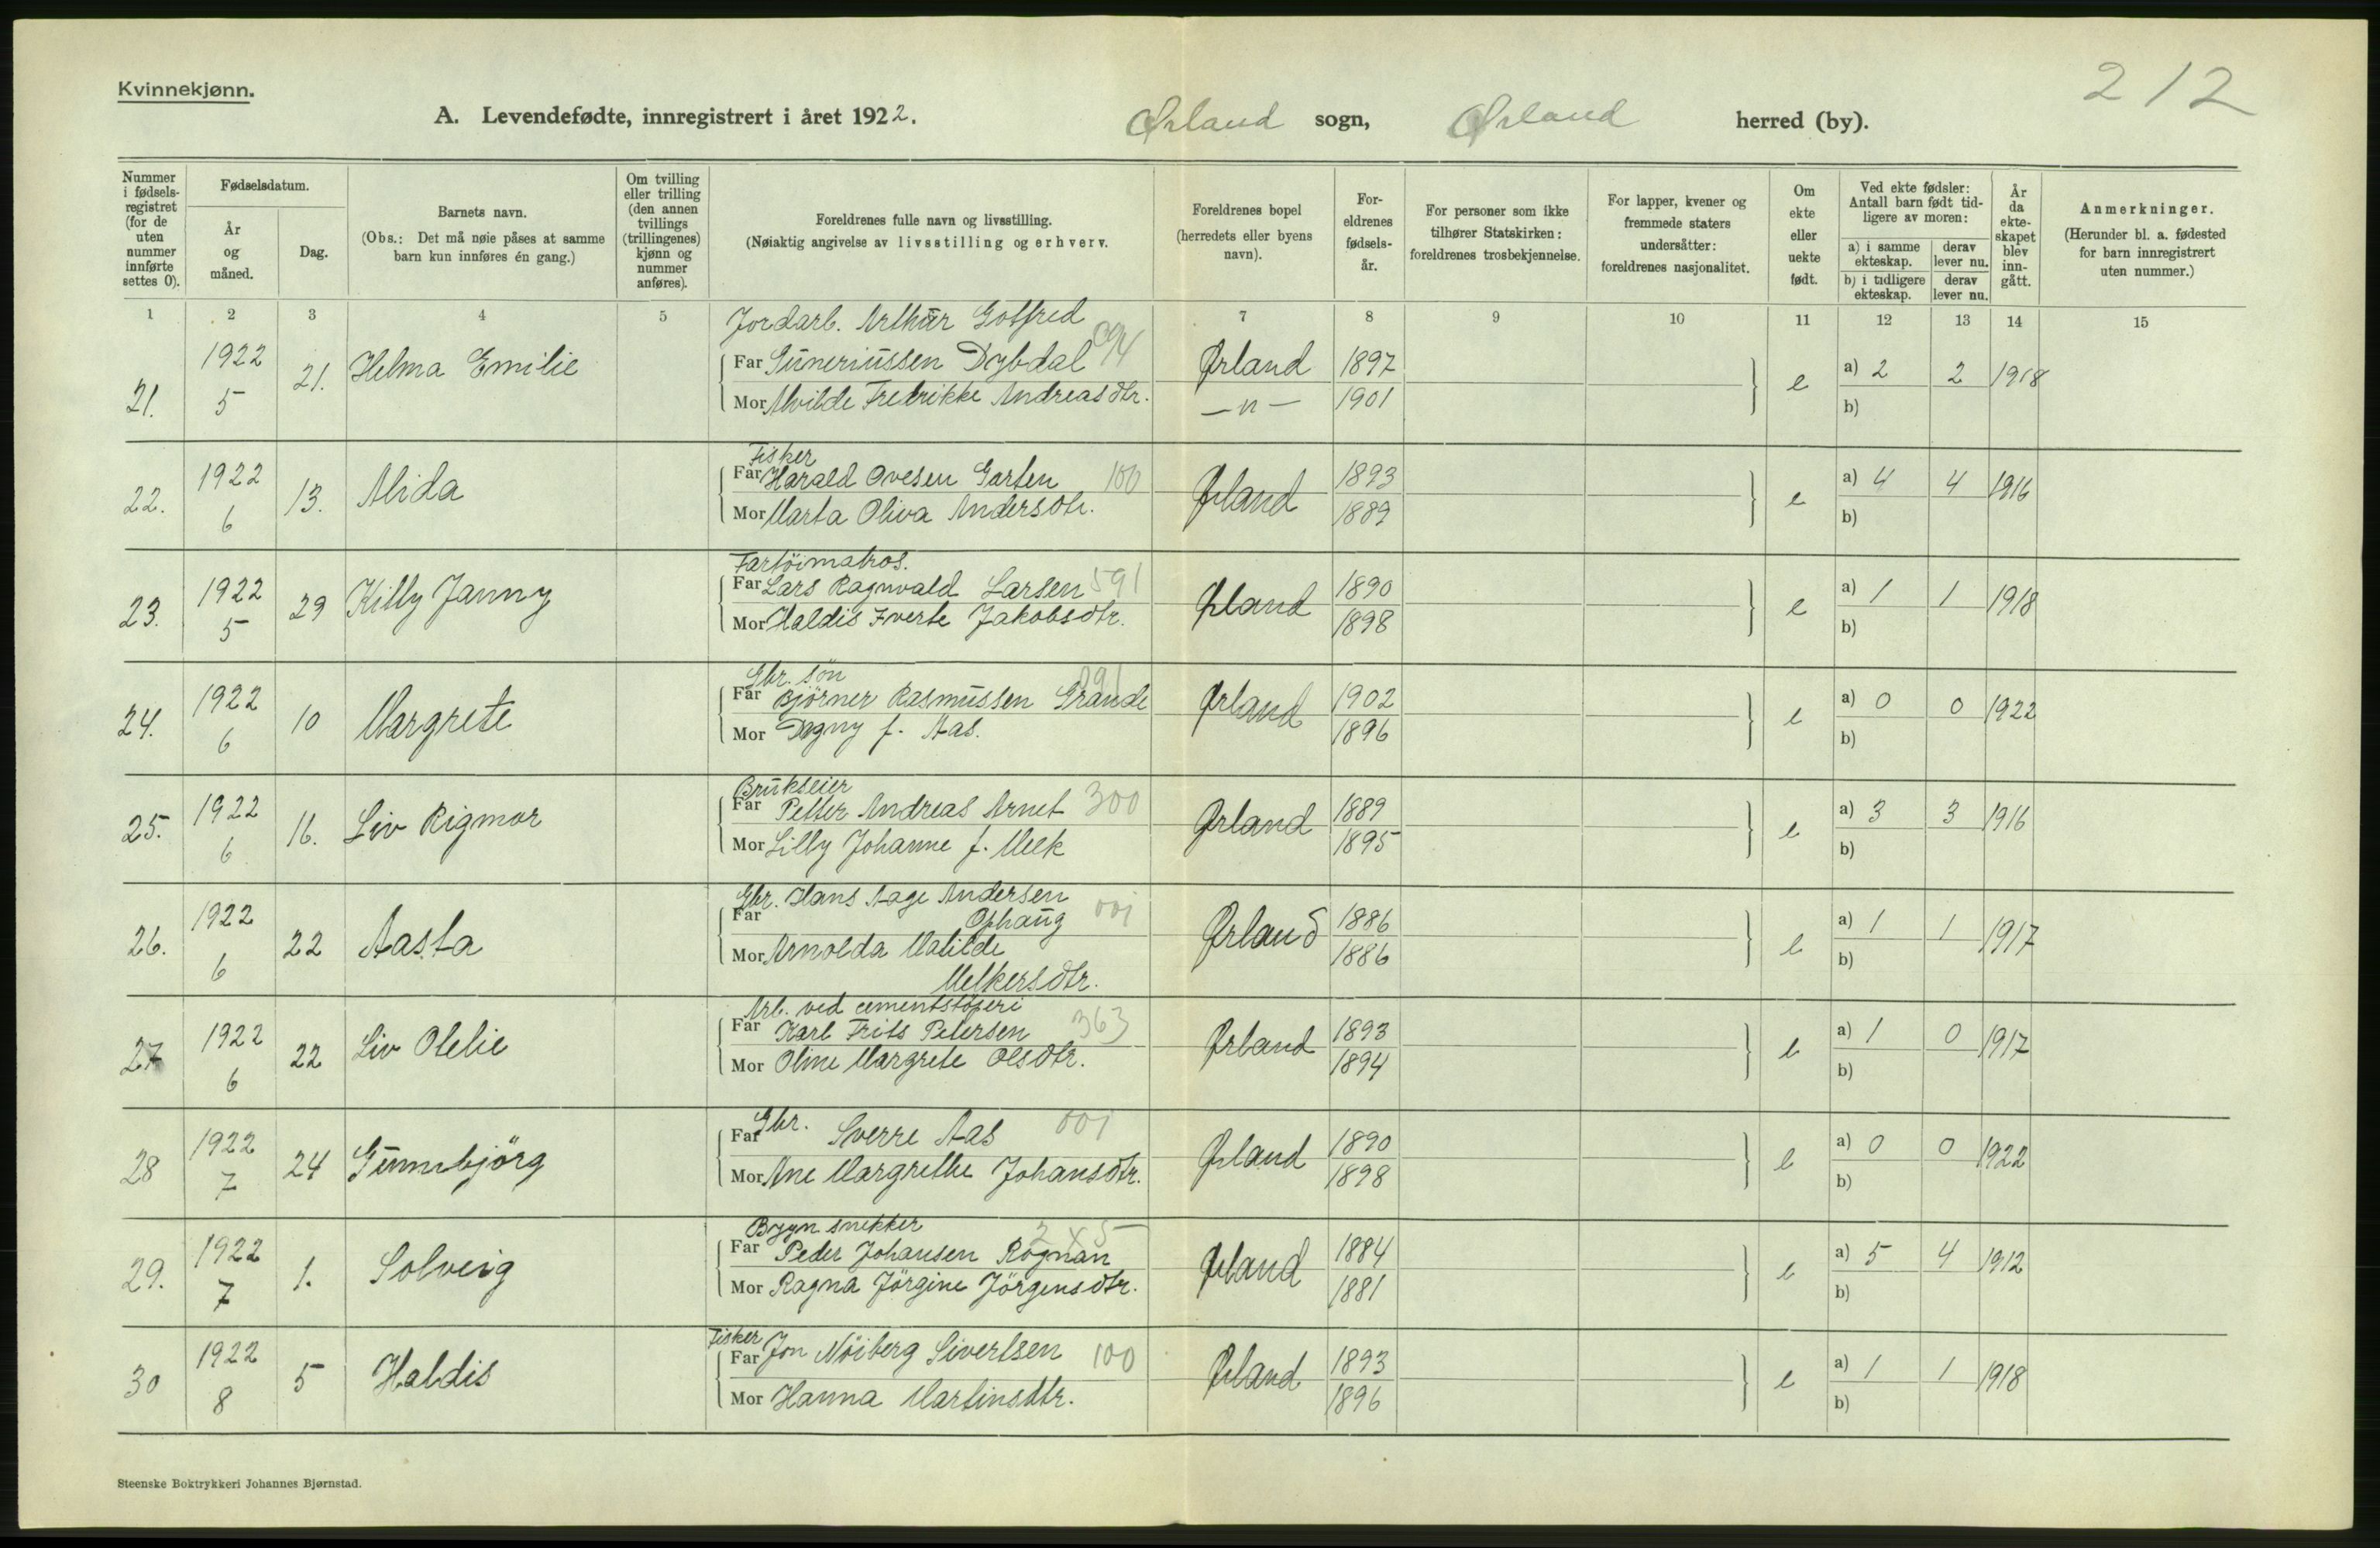 Kvinnekjønn.
212
A. Levendefødte, innregistrert i året 1922. Ørland sogn, Ørland herred (by).
Nummer i fødselsregistret (for de uten nummer innførte settes 0).
Fødselsdatum.
År og måned.
Dag.
Barnets navn.
(Obs.: Det må nøie påses at samme barn kun innføres én gang.)
Om tvilling eller trilling (den annen tvillings (trillingenes) kjønn og nummer anføres).
Foreldrenes fulle navn og livsstilling.
(Nøiaktig angivelse av livsstilling og erhverv.
Foreldrenes bopel (herredets eller byens navn).
Foreldrenes fødselsår.
For personer som ikke tilhører Statskirken: foreldrenes trosbekjennelse.
For lapper, kvener og fremmede staters undersåtter: foreldrenes nasjonalitet.
Om ekte eller uekte født.
Ved ekte fødsler: Antall barn født tidligere av moren:
a) i samme ekteskap. derav lever nu.
b) i tidligere ekteskap. derav lever nu.
År da ekteskapet blev inngått.
Anmerkninger.
(Herunder bl. a. fødested for barn innregistrert uten nummer.)
1 2 3 4 5 7 8 9 10 11 12 13 14 15
Jordarb. Arthur Gotfred 094
21. 1922 5 21. Helma Emilie Far Guneriussen Dybdal Ørland 1897 e a) 2 2 1918
Mor Alvilde Fredrikke Andreasdtr. —"— 1901 b)
Fisker
22. 1922 6 13. Alida Far Harald Ovesen Garten 100 Ørland 1893 e a) 4 4 1916
Mor Marta Oliva Andersdtr. 1889 b)
Fartöimatros.
23. 1922 5 29 Killy Janny Far Lars Ragnvald Larsen 591 Ørland 1890 e a) 1 1 1918
Mor Haldis Iverte Jakobsdtr. 1898 b)
Gbr. sön 091
24. 1922 6 10 Margrete Far Björner Rasmussen Grande Ørland 1902 e a) 0 0 1922
Mor Dagny f. Aas. 1896 b)
Brukseier
25. 1922 6 16. Liv Rigmor Far Petter Andreas Arnet 300 Ørland 1889 e a) 3 3 1916
Mor Lilly Johanne f. Meek 1895 b)
Gbr. Hans Aage Andersen
26. 1922 6 22 Aasta Far Ophaug 001 Ørland 1886 e a) 1 1 1917
Mor Arnolda Matilde 1886 b)
Melkersdtr.
Arb. ved cementstöperi
27 1922 6 22 Liv Olelie Far Karl Frits Petersen 363 Ørland 1893 e a) 1 0 1917
Mor Oline Margrete Olsdtr. 1894 b)
Gbr.
28 1922 7 24 Gunnbjörg Far Sverre Aas 001 Ørland 1890 e a) 0 0 1922
Mor Ane Margrethe Johansdtr. 1898 b)
Bygn snekker 2x5
29. 1922 7 1. Solveig Far Peder Johansen Rognan Ørland 1884 e a) 5 4 1912
Mor Ragna Jörgine Jörgensdtr. 1881 b)
Fisker
30 1922 8 5 Haldis Far Jon Nöiberg Sivertsen 100 Ørland 1893 e a) 1 1 1918
Mor Hanna Martinsdtr. 1896 b)
Steenske Boktrykkeri Johannes Bjørnstad.